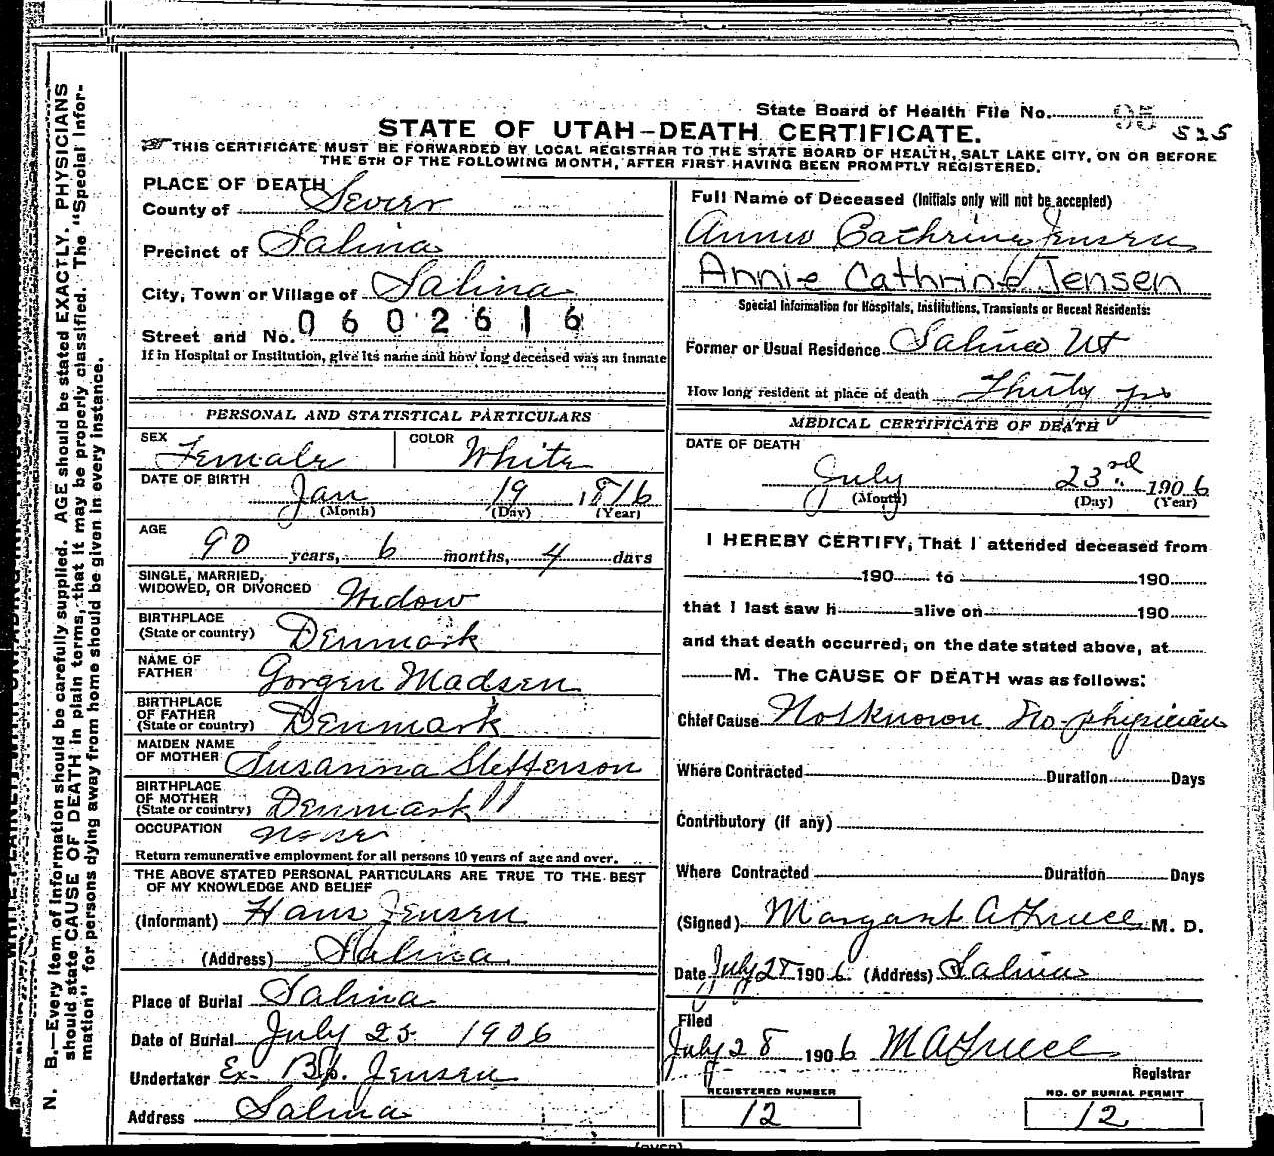 State Board of Health File No. 95 525
STATE OF UTAH—DEATH CERTIFICATE.
THIS CERTIFICATE MUST BE FORWARDED BY LOCAL REGISTRAR TO THE STATE BOARD OF HEALTH, SALT LAKE CITY, ON OR BEFORE
THE 5TH OF THE FOLLOWING MONTH, AFTER FIRST HAVING BEEN PROMPTLY REGISTERED.
PLACE OF DEATH
County of Sevier
Precinct of Salina
City, Town or Village of Salina
Street and No. 0602616
If in Hospital or Institution, give its name and how long deceased was an inmate
PERSONAL AND STATISTICAL PARTICULARS
SEX Female COLOR White
DATE OF BIRTH Jan 19 1816
(Month) (Day) (Year)
AGE 90 years, 6 months, 4 days
SINGLE, MARRIED,
WIDOWED, OR DIVORCED Widow
BIRTHPLACE
(State or country) Denmark
NAME OF
FATHER Gorgen Madsen
BIRTHPLACE
OF FATHER
(State or country) Denmark
MAIDEN NAME
OF MOTHER Susanna Stefferson
BIRTHPLACE
OF MOTHER
(State or country) Denmark
OCCUPATION None
Return remunerative employment for all persons 10 years of age and over.
THE ABOVE STATED PERSONAL PARTICULARS ARE TRUE TO THE BEST
OF MY KNOWLEDGE AND BELIEF
(Informant) Hans Jensen
(Address) Salina
Place of Burial Salina
Date of Burial July 25 1906
Undertaker Ex- Bp. Jensen
Address Salina
Full Name of Deceased (Initials only will not be accepted)
Annie Cathrine Jensen
Annie Cathrine Jensen
Special Information for Hospitals, Institutions, Transients or Recent Residents:
Former or Usual Residence Salina Ut
How long resident at place of death Thirty yrs
MEDICAL CERTIFICATE OF DEATH
DATE OF DEATH
July 23rd 1906
(Month) (Day) (Year)
I HEREBY CERTIFY, That I attended deceased from
190 to 190
that I last saw h alive on 190
and that death occurred, on the date stated above, at
M. The CAUSE OF DEATH was as follows:
Chief Cause Not known No physician
Where Contracted Duration Days
Contributory (if any)
Where Contracted Duration Days
(Signed) Margaret A Gruell M. D.
Date July 28 1906 (Address) Salina
Filed
July 28 1906 M A Gruell
Registrar
REGISTERED NUMBER NO. OF BURIAL PERMIT
12 12
(OVER)
N. B.—Every item of information should be carefully supplied. AGE should be stated EXACTLY. PHYSICIANS
should state CAUSE OF DEATH in plain terms, that it may be properly classified. The "Special Infor-
mation" for persons dying away from home should be given in every instance.